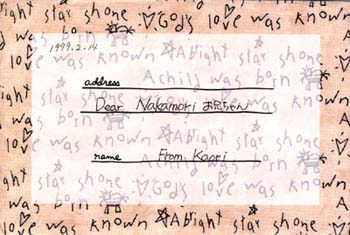 star shone God's love was
1999.2.14
was known A bright star shone
address
A child was born
Dear Nakamori お兄ちゃん
name From Kaori
A child was born
bright star shone God's love was known
was born
love was known A bright star shone